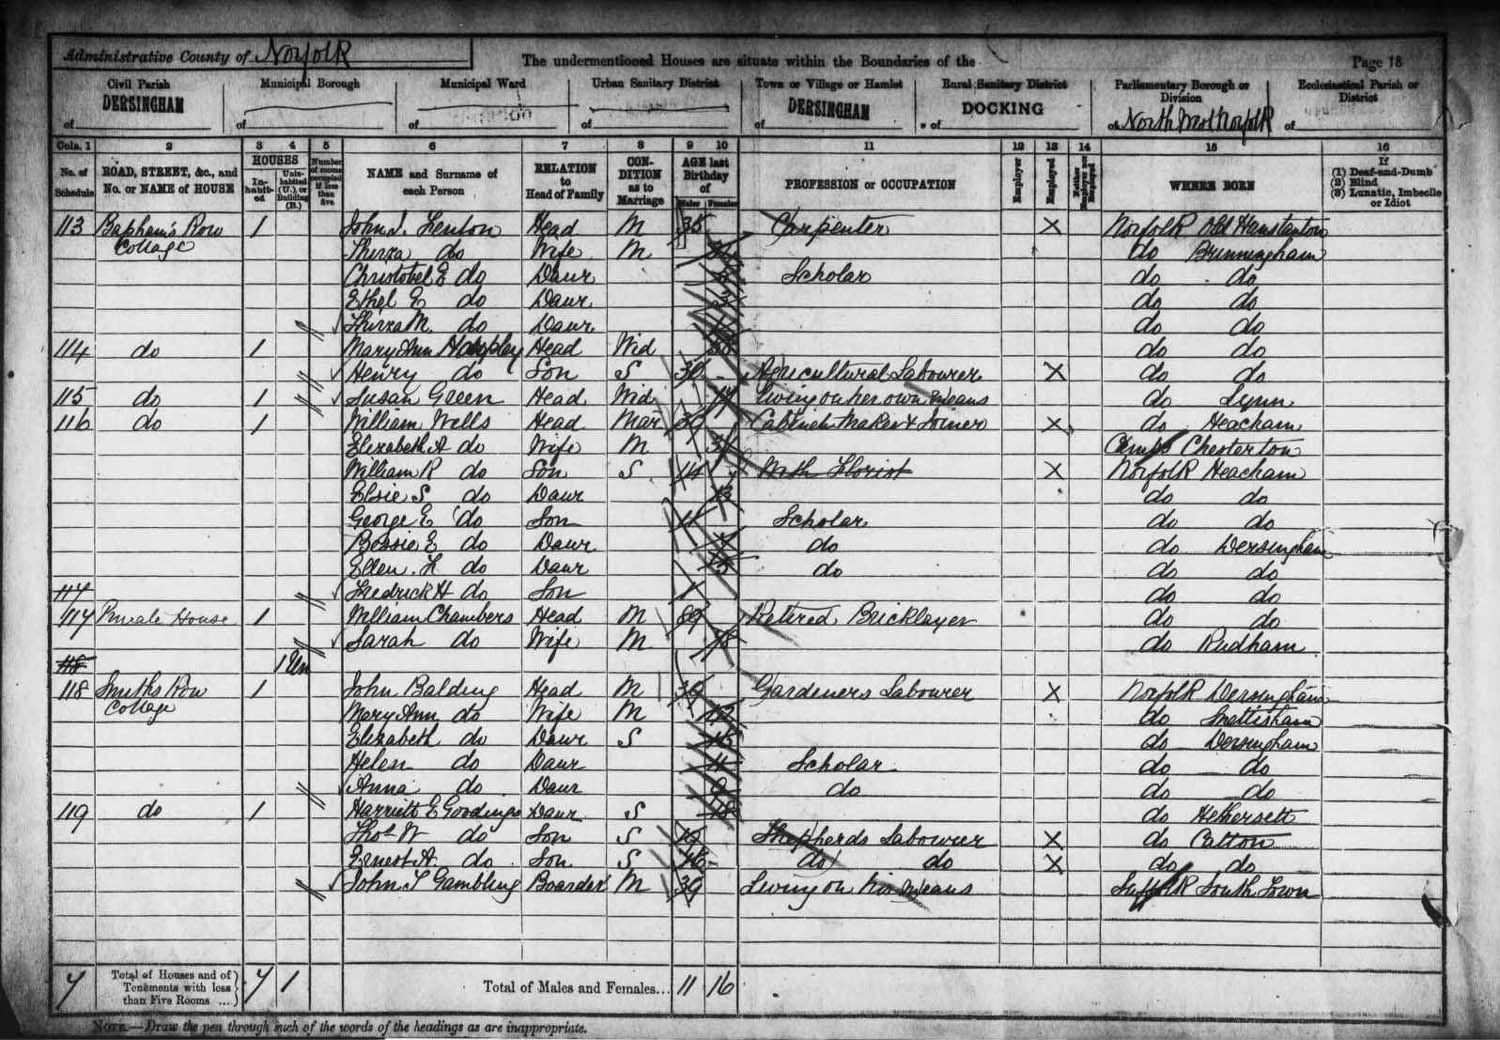 Administrative County of Norfolk
The undermentioned Houses are situate within the Boundaries of the
Page 18
Civil Parish of DERSINGHAM
Municipal Borough of
Municipal Ward of
Urban Sanitary District of
Town or Village or Hamlet of DERSINGHAM
Rural Sanitary District of DOCKING
Parliamentary Borough or Division of North West Norfolk
Ecclesiastical Parish or District of
Cols. 1 2 3 4 5 6 7 8 9 10 11 12 13 14 15 16
No. of Schedule
ROAD, STREET, &c., and No. or NAME of HOUSE
HOUSES
Inhabited
Uninhabited (U.) or Building (B.)
Number of rooms occupied if less than five
NAME and Surname of each Person
RELATION to Head of Family
CONDITION as to Marriage
AGE last Birthday of
Males Females
PROFESSION or OCCUPATION
Employer
Employed
Neither Employer nor Employed
WHERE BORN
If
(1) Deaf-and-Dumb
(2) Blind
(3) Lunatic, Imbecile or Idiot
113 Row 1 John Head M 35 Carpenter X Norfolk Old Hunstanton
Cottage Thirza do Wife M do
do Daur Scholar do do
Ethel E do Daur do do
Thirza M do Daur do do
114 do 1 Mary Ann Head Wid do do
Henry do Son S 30 Agricultural Labourer X do do
115 do 1 Susan Green Head Wid Living on her own Means do Lynn
116 do 1 William Wells Head Mar 39 Cabinet Maker & Joiner X do Heacham
Elizabeth A do Wife M Cambs Chesterton
William R do Son S 14 Florist X Norfolk Heacham
Elsie S do Daur do do
George E do Son 11 Scholar do do
Bessie E do Daur do do Dersingham
Ellen do Daur do do do
117 Fredrick H do Son do do
117 Private House 1 William Chambers Head M Retired Bricklayer do do
Sarah do Wife M do Rudham
118 1 Un
118 Smiths Row 1 John Balding Head M Gardeners Labourer X Norfolk Dersingham
Cottage Mary Ann do Wife M do Snettisham
Elizabeth do Daur S do Dersingham
Helen do Daur Scholar do do
Anna do Daur do do do
119 do 1 Harriett E Goodings Daur S do Hethersett
Thos W do Son S Shepherds Labourer X do Catton
Ernest A do Son S 16 do do X do do
John Gambling Boarder M 39 Living on his Means Suffolk South Town
7 Total of Houses and of Tenements with less than Five Rooms ... 7 1 Total of Males and Females... 11 16
NOTE.—Draw the pen through such of the words of the headings as are inappropriate.